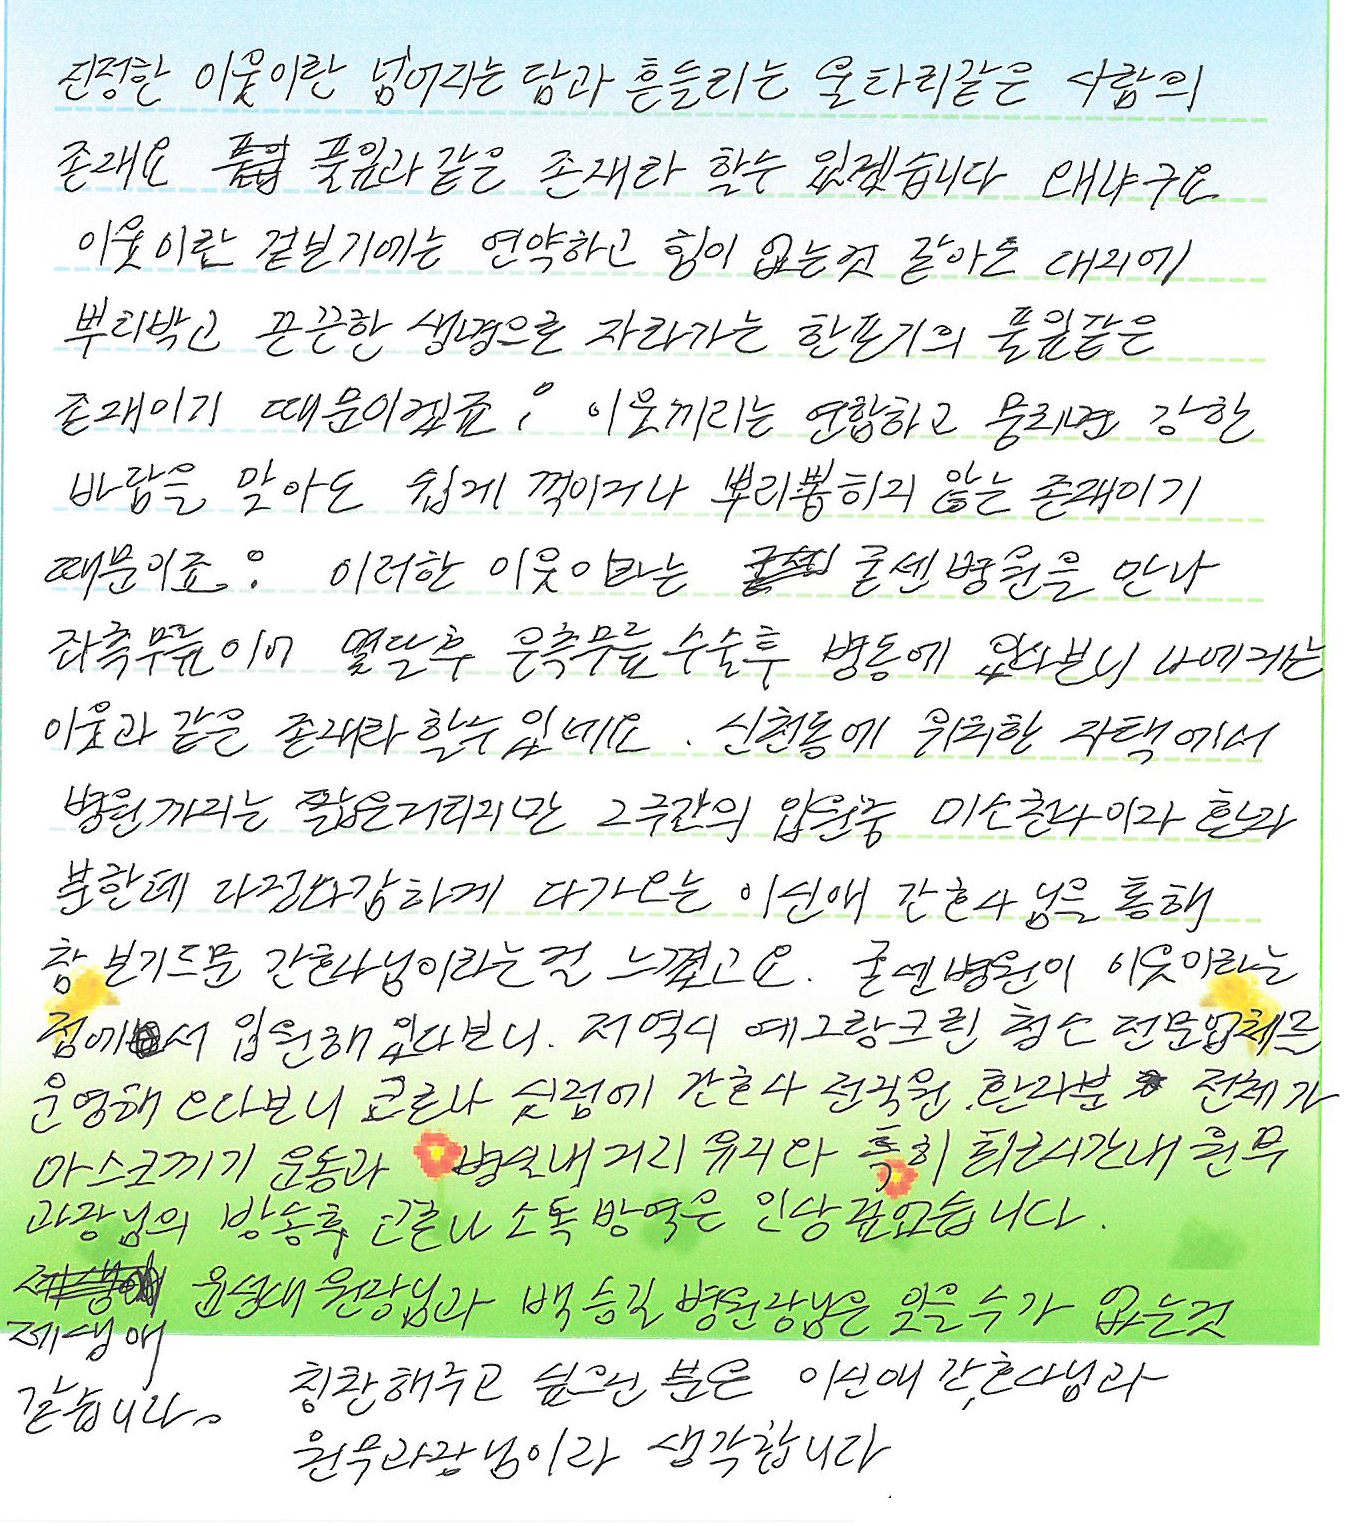 진정한 이웃이란 넘어지는 담과 흔들리는 울타리같은 사람의
존재요 풀잎과 같은 존재라 할수 있겠습니다 왜냐구요
이웃이란 겉보기에는 연약하고 힘이 없는것 같아도 대지에
뿌리박고 끈끈한 생명으로 자라가는 한포기의 풀잎같은
존재이기 때문이겠죠; 이웃끼리는 연합하고 뭉치면 강한
바람을 맞아도 쉽게 꺽이거나 뿌리뽑히지 않는 존재이기
때문이죠. 이러한 이웃이라는 굳센병원을 만나
좌측무릎이어 몇달후 우측무릎수술후 병동에 있다보니 나에게는
이웃과 같은 존재라 할수있네요. 신천동에 위치한 자택에서
병원까지는 짧은거리지만 2주간의 입원중 미소천사이자 환자
분한테 다정다감하게 다가오는 이신애 간호사님을 통해
참 보기드문 간호사님이라는걸 느꼈고요. 굳센병원이 이웃이라는
점에서 입원해 있다보니. 저역시 예그랑크린 청소 전문업체를
운영해 오다보니 코로나 싯점에 간호사 전직원 환자분 전체가
마스크끼기 운동과 병실내 거리 유지와 특히 퇴근시간내 원무
과장님의 방송후 코로나 소독 방역은 인상 깊었습니다.
윤성대원장님과 백승길 병원장님은 잊을수가 없는것
제생애
같습니다. 칭찬해주고 싶으신 분은 이신애 간호사님과
원무과장님이라 생각합니다